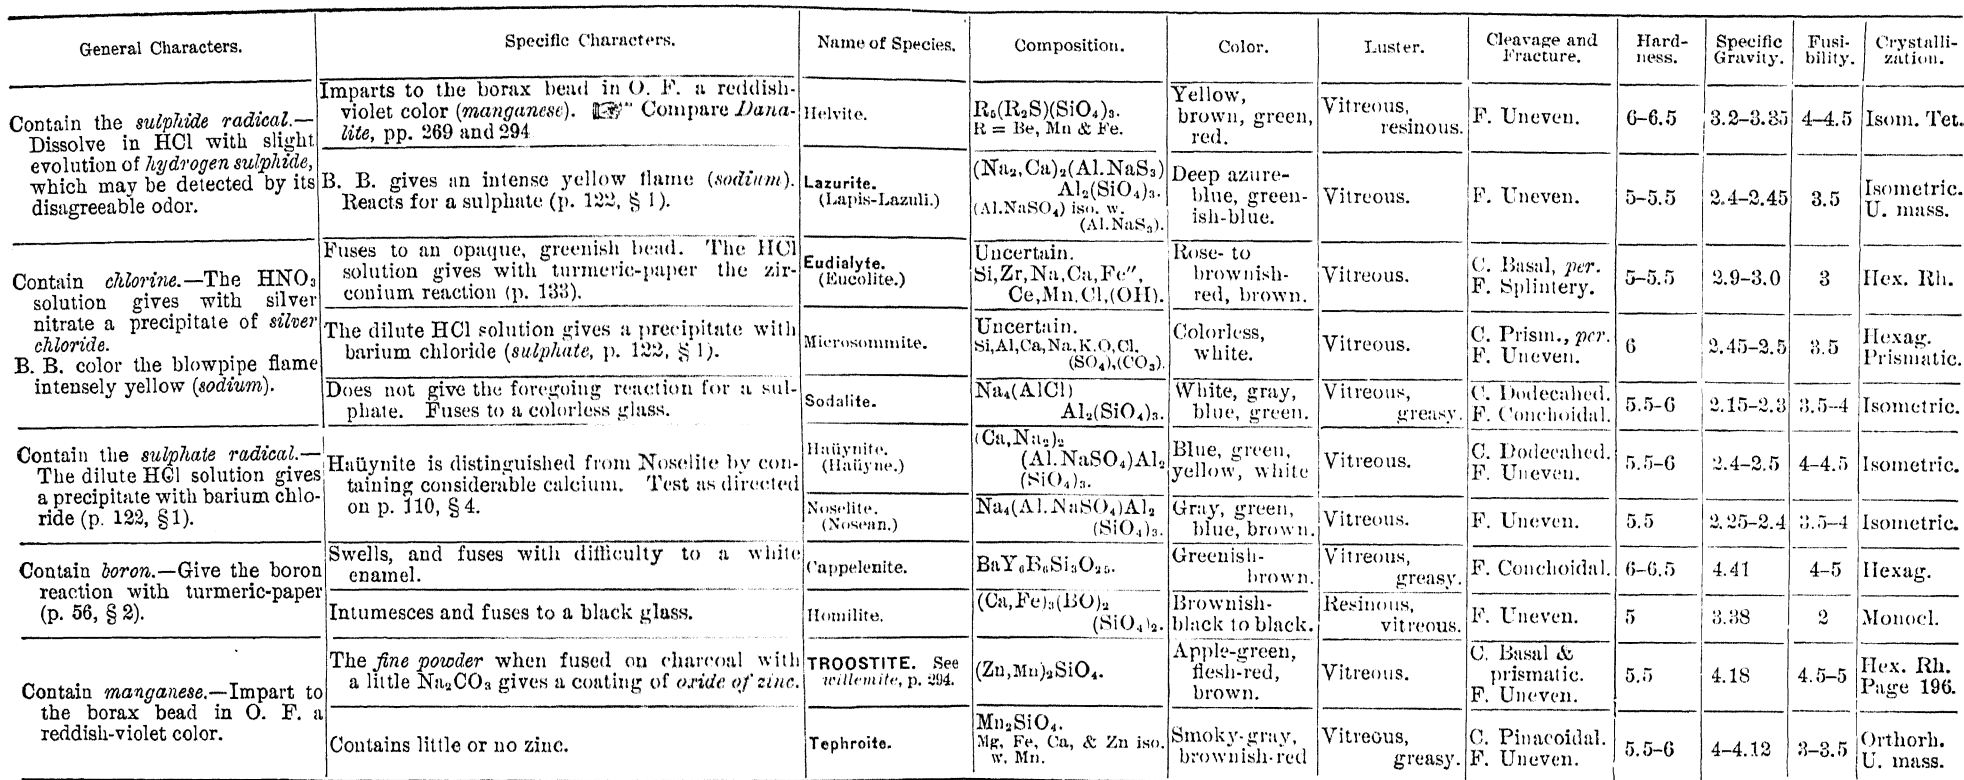 General Characters. Specific Characters. Name of Species. Composition. Color. Luster. Cleavage and Fracture. Hard-ness. Specific Gravity. Fusi-bility. Crystalli-zation.
Contain the sulphide radical.—
Dissolve in HCl with slight
evolution of hydrogen sulphide,
which may be detected by its
disagreeable odor.
Imparts to the borax bead in O. F. a reddish-
violet color (manganese). ☞ Compare Dana-
lite, pp. 269 and 294
Helvite.
R₅(R₂S)(SiO₄)₃.
R = Be, Mn & Fe.
Yellow,
brown, green,
red.
Vitreous,
resinous.
F. Uneven.
6–6.5
3.2–3.35
4–4.5
Isom. Tet.
B. B. gives an intense yellow flame (sodium).
Reacts for a sulphate (p. 122, § 1).
Lazurite.
(Lapis-Lazuli.)
(Na₂,Ca)₂(Al.NaS₃)
Al₂(SiO₄)₃.
(Al.NaSO₄) iso. w.
(Al.NaS₃).
Deep azure-
blue, green-
ish-blue.
Vitreous.
F. Uneven.
5–5.5
2.4–2.45
3.5
Isometric.
U. mass.
Contain chlorine.—The HNO₃
solution gives with silver
nitrate a precipitate of silver
chloride.
B. B. color the blowpipe flame
intensely yellow (sodium).
Fuses to an opaque, greenish bead. The HCl
solution gives with turmeric-paper the zir-
conium reaction (p. 133).
Eudialyte.
(Eucolite.)
Uncertain.
Si,Zr,Na,Ca,Fe″,
Ce,Mn,Cl,(OH).
Rose- to
brownish-
red, brown.
Vitreous.
C. Basal, per.
F. Splintery.
5–5.5
2.9–3.0
3
Hex. Rh.
The dilute HCl solution gives a precipitate with
barium chloride (sulphate, p. 122, § 1).
Microsommite.
Uncertain.
Si,Al,Ca,Na,K,O,Cl,
(SO₄),(CO₃).
Colorless,
white.
Vitreous.
C. Prism., per.
F. Uneven.
6
2.45–2.5
3.5
Hexag.
Prismatic.
Does not give the foregoing reaction for a sul-
phate. Fuses to a colorless glass.
Sodalite.
Na₄(AlCl)
Al₂(SiO₄)₃.
White, gray,
blue, green.
Vitreous,
greasy.
C. Dodecahed.
F. Conchoidal.
5.5–6
2.15–2.3
3.5–4
Isometric.
Contain the sulphate radical.—
The dilute HCl solution gives
a precipitate with barium chlo-
ride (p. 122, §1).
Haüynite is distinguished from Noselite by con-
taining considerable calcium. Test as directed
on p. 110, § 4.
Haüynite.
(Haüyne.)
(Ca,Na₂)₂
(Al.NaSO₄)Al₂
(SiO₄)₃.
Blue, green,
yellow, white
Vitreous.
C. Dodecahed.
F. Uneven.
5.5–6
2.4–2.5
4–4.5
Isometric.
Noselite.
(Nosean.)
Na₄(Al.NaSO₄)Al₂
(SiO₄)₃.
Gray, green,
blue, brown.
Vitreous.
F. Uneven.
5.5
2.25–2.4
3.5–4
Isometric.
Contain boron.—Give the boron
reaction with turmeric-paper
(p. 56, § 2).
Swells, and fuses with difficulty to a white
enamel.
Cappelenite.
BaY₆B₆Si₃O₂₅.
Greenish-
brown.
Vitreous,
greasy.
F. Conchoidal.
6–6.5
4.41
4–5
Hexag.
Intumesces and fuses to a black glass.
Homilite.
(Ca,Fe)₃(BO)₂
(SiO₄)₂.
Brownish-
black to black.
Resinous,
vitreous.
F. Uneven.
5
3.38
2
Monocl.
Contain manganese.—Impart to
the borax bead in O. F. a
reddish-violet color.
The fine powder when fused on charcoal with
a little Na₂CO₃ gives a coating of oxide of zinc.
TROOSTITE. See
willemite, p. 294.
(Zn,Mn)₂SiO₄.
Apple-green,
flesh-red,
brown.
Vitreous.
C. Basal &
prismatic.
F. Uneven.
5.5
4.18
4.5–5
Hex. Rh.
Page 196.
Contains little or no zinc.
Tephroite.
Mn₂SiO₄.
Mg, Fe, Ca, & Zn iso.
w. Mn.
Smoky-gray,
brownish-red
Vitreous,
greasy.
C. Pinacoidal.
F. Uneven.
5.5–6
4–4.12
3–3.5
Orthorh.
U. mass.